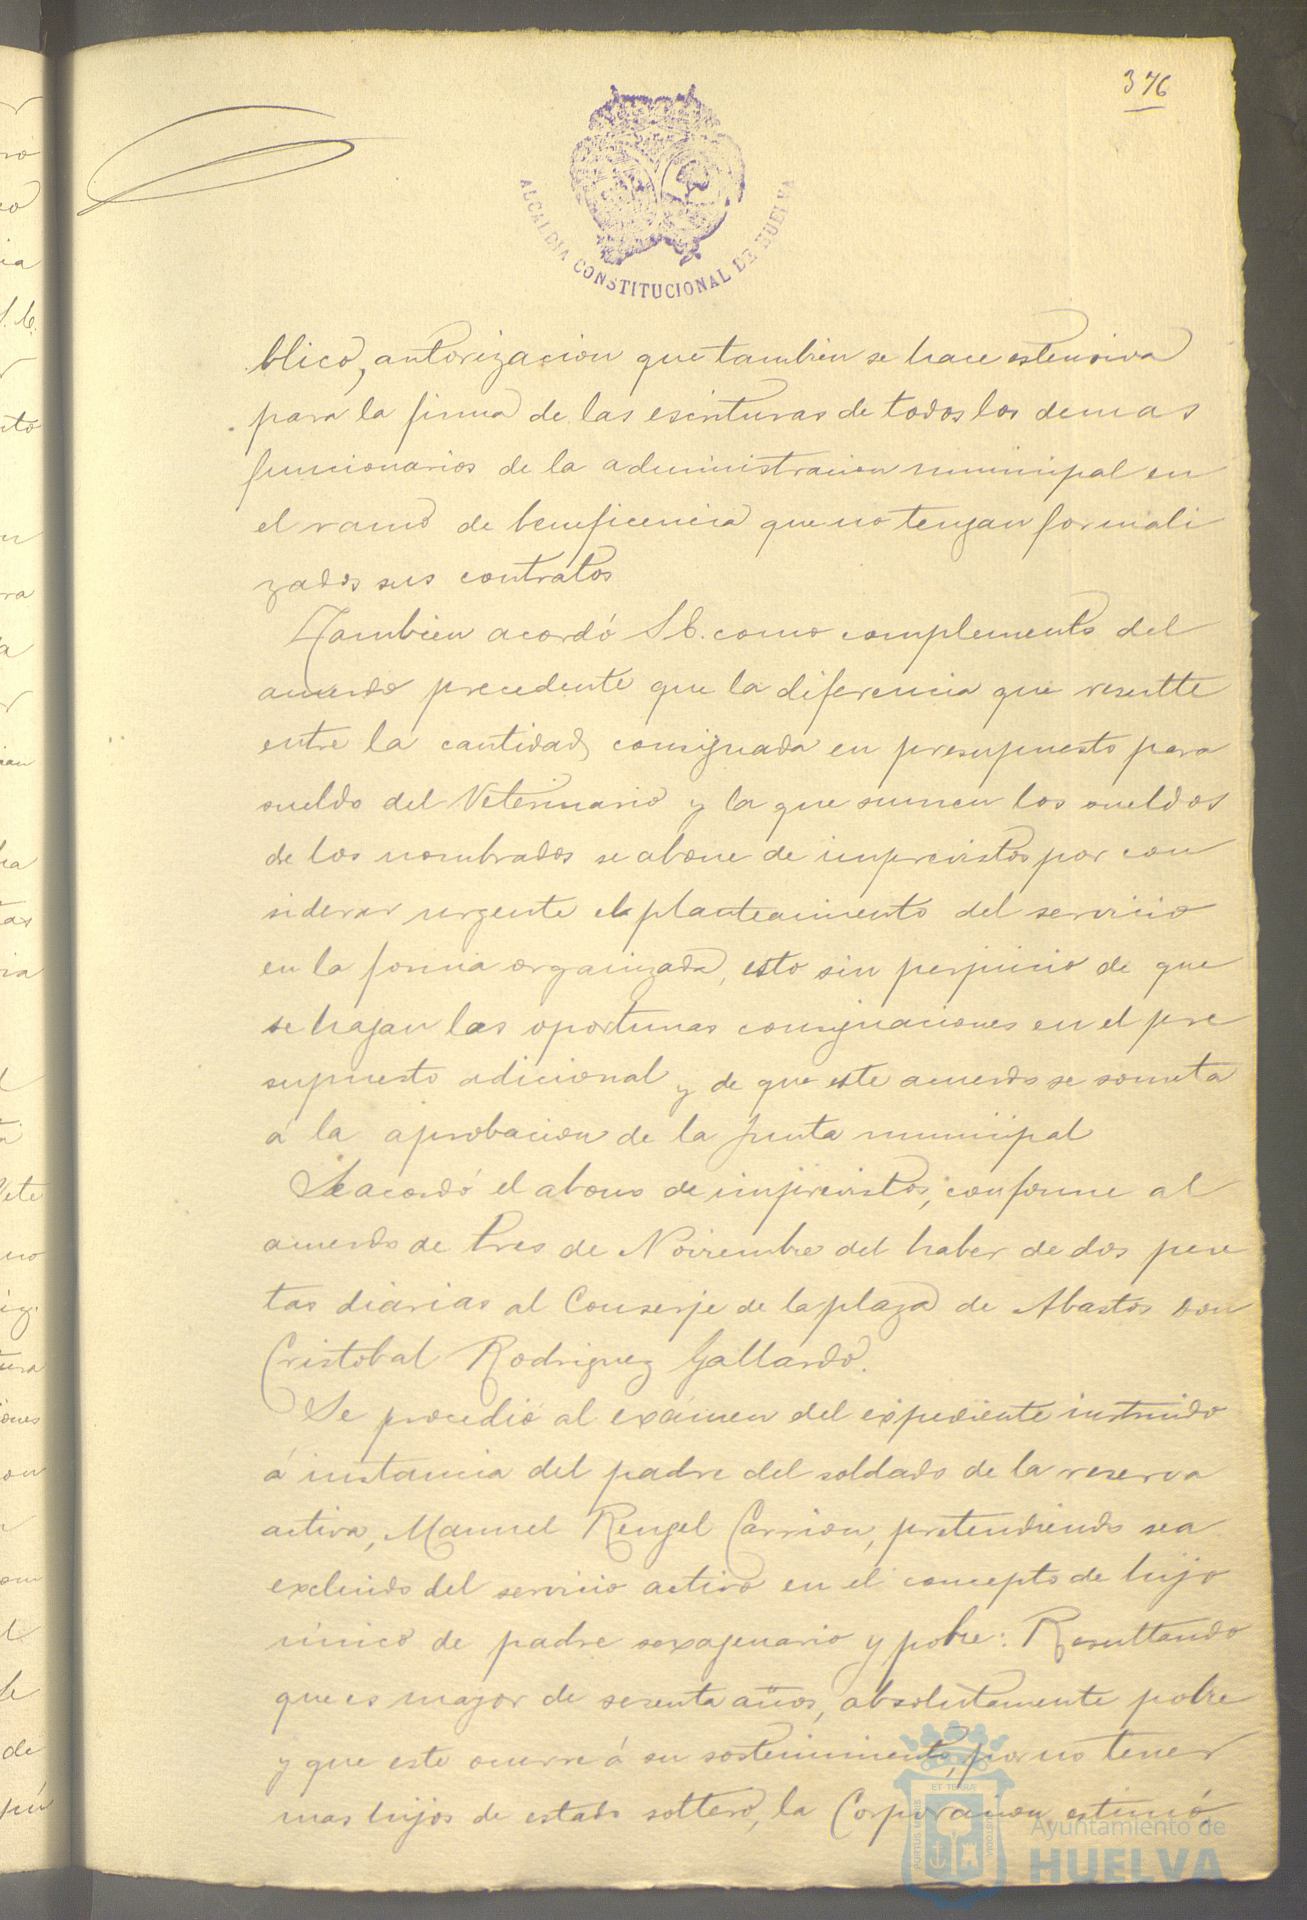 376
ALCALDIA CONSTITUCIONAL DE HUELVA
blico, autorizacion que tambien se hace estensiva
para la firma de las escrituras de todos los demas
funcionarios de la administracion municipal en
el ramo de beneficencia que no tengan formali
zados sus contratos
Tambien acordó S. E. como complemento del
acuerdo precedente que la diferencia que resultte
entre la cantidad consignada en presupuesto para
sueldo del Veterinario y la que sumen los sueldos
de los nombrados se abone de imprevistos por con
siderar urgente el planteamiento del servicio
en la forma organizada, esto sin perjuicio de que
se hagan las oportunas consignaciones en el pre
supuesto adicional y de que este acuerdo se someta
á la aprobacion de la Junta municipal
Se acordó el abono de imprevistos, conforme al
acuerdo de tres de Noviembre del haber de dos pese
tas diarias al Conserje de la plaza de Abastos don
Cristobal Rodriguez Gallardo.
Se procedió al exámen del expediente instruido
á instancia del padre del soldado de la reserva
activa, Manuel Rengel Carrion, pretendiendo sea
excluido del servicio activo en el concepto de hijo
único de padre sexagenario y pobre: Resultando
que es mayor de sesenta años, absolutamente pobre
y que este ocurre á su sostenimiento, por no tener
mas hijos de estado soltero, la Corporacion estimó
PORTUS MARIS ET TERRÆ CUSTODIA
Ayuntamiento de
HUELVA